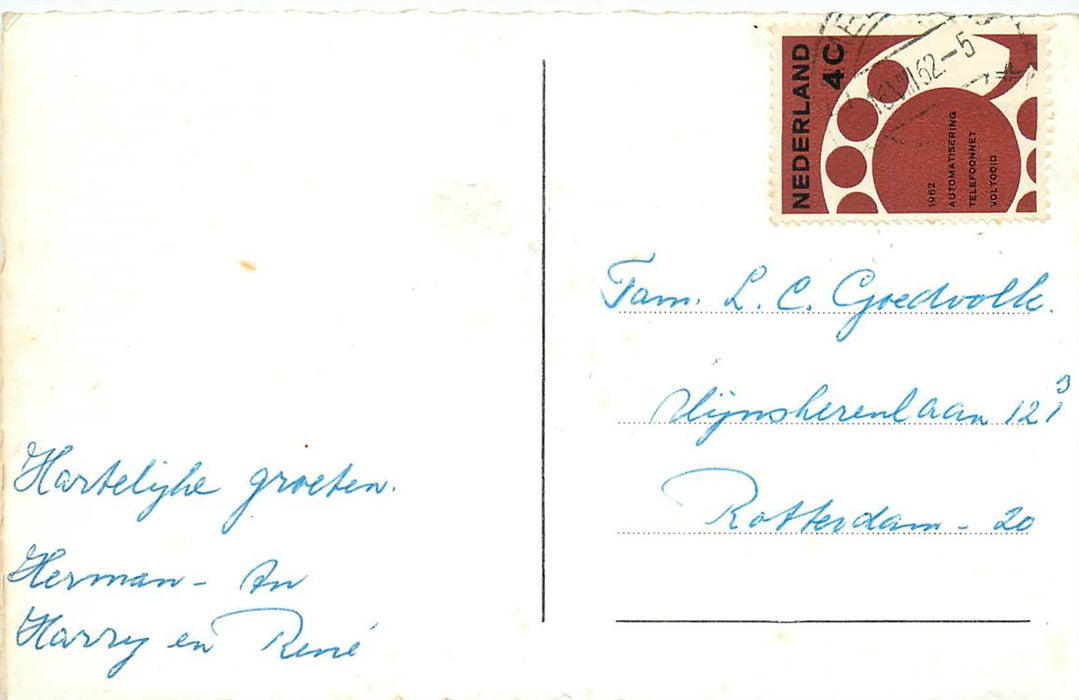 NEDERLAND
4C
1962
AUTOMATISERING
TELEFOONNET
VOLTOOID
62-5
Fam. L. C. Goedvolk.
Wijnsherenlaan 12
Rotterdam - 20
Hartelijke groeten.
Herman - An
Harry en René